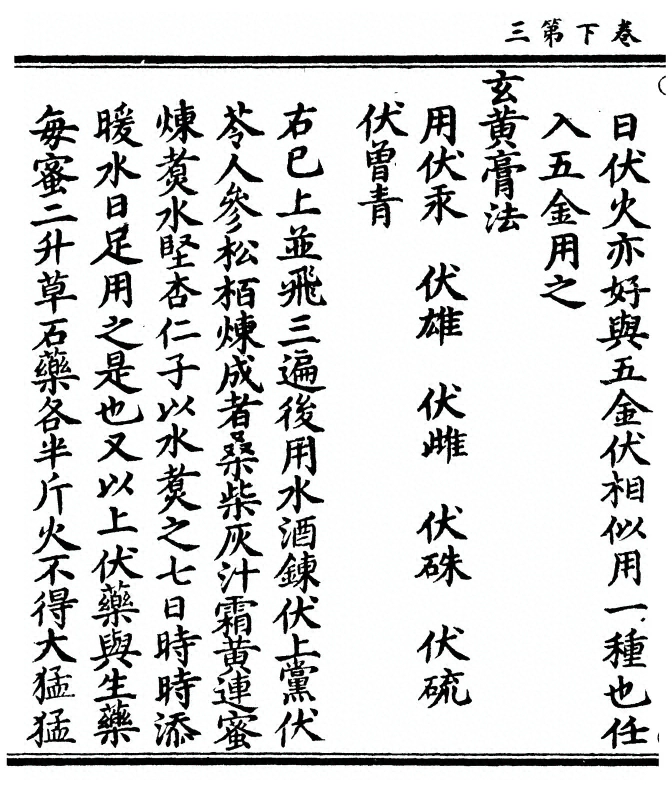 卷下第三
日伏火亦好與五金伏相似用一種也任
入五金用之
玄黃膏法
用伏汞　伏雄　伏雌　伏硃　伏硫
伏曾青
右已上並飛三遍後用水酒鍊伏上黨伏
苓人參松栢煉成者桑柴灰汁霜黃連蜜
煉煑水堅杏仁子以水煑之七日時時添
暖水日足用之是也又以上伏藥與生藥
每蜜二升草石藥各半斤火不得大猛猛